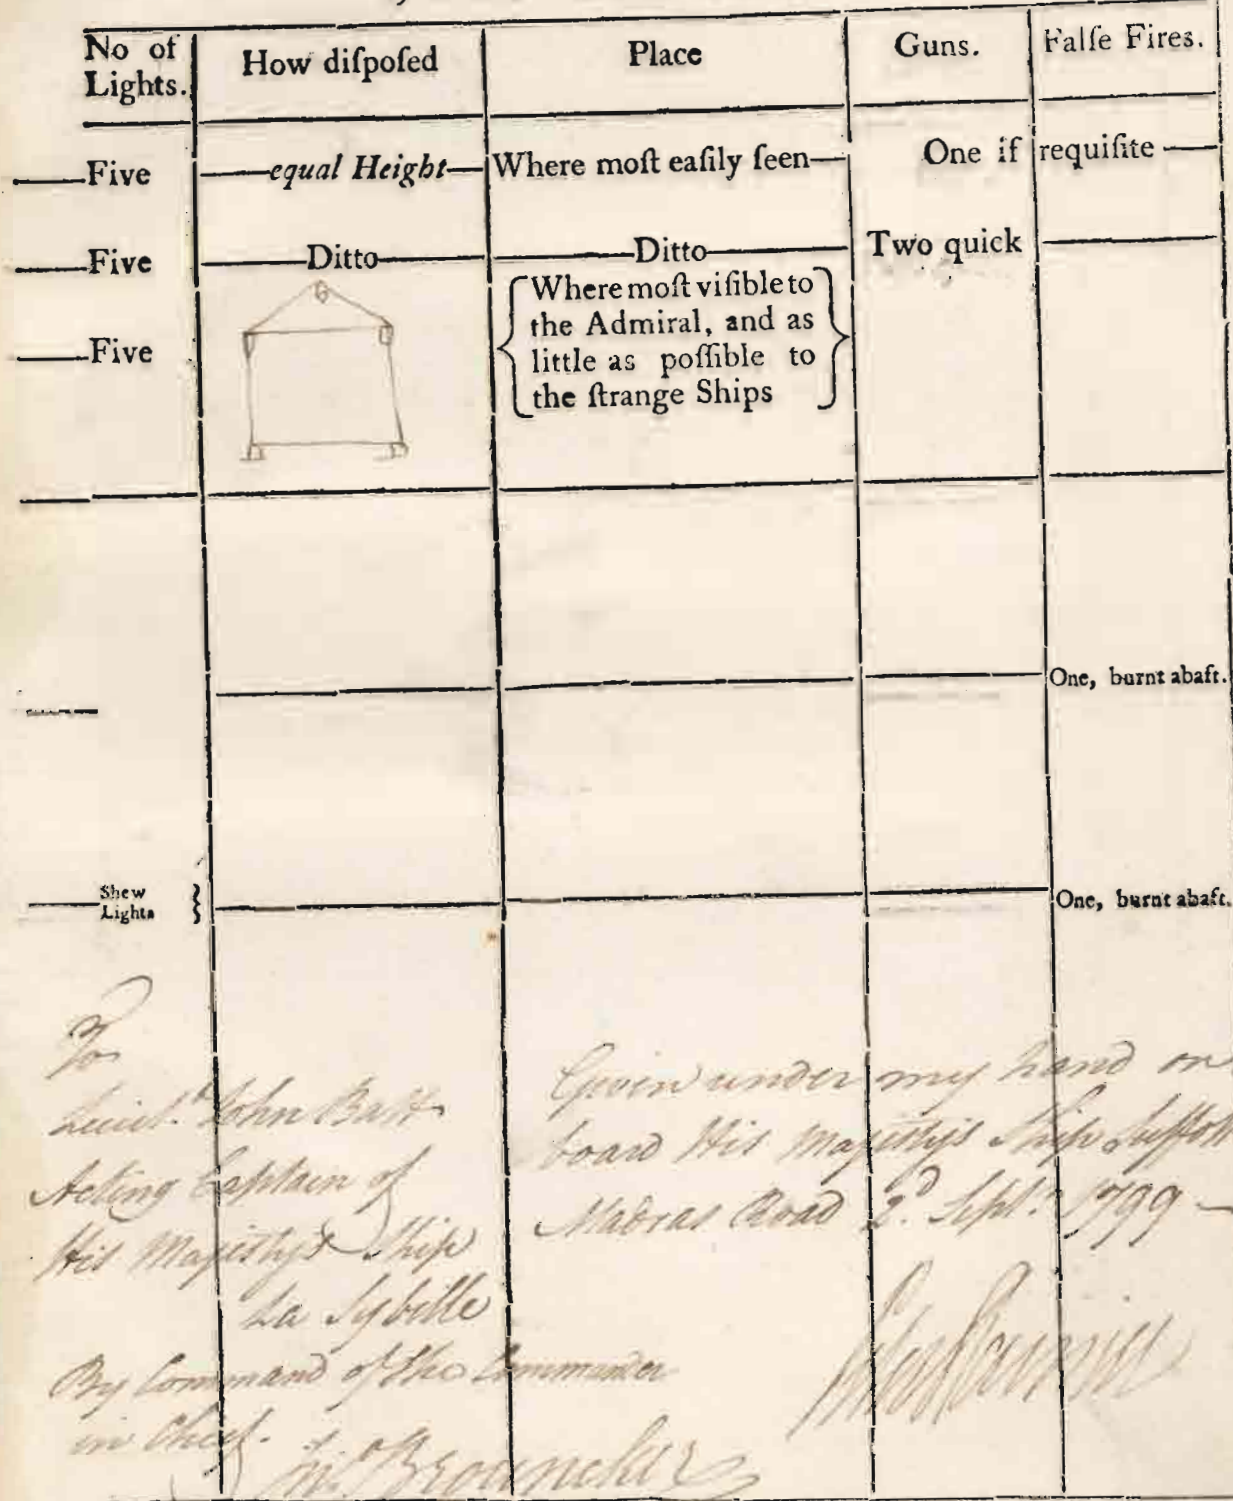 No of Lights. How diſpoſed Place Guns. Falſe Fires.
Five equal Height Where moſt eaſily ſeen One if requiſite
Five Ditto Ditto Two quick
Five
Where moſt viſible to
the Admiral, and as
little as poſſible to
the ſtrange Ships
One, burnt abaft.
Shew Lights One, burnt abaft.
To
Lieut. John Batt
Acting Captain of
His Majesty's Ship
La Sybille
By Command of the Commander
in Chief.
Given under my hand on
board His Majesty's Ship Suffolk
Madras Road 2d. Sept. 1799